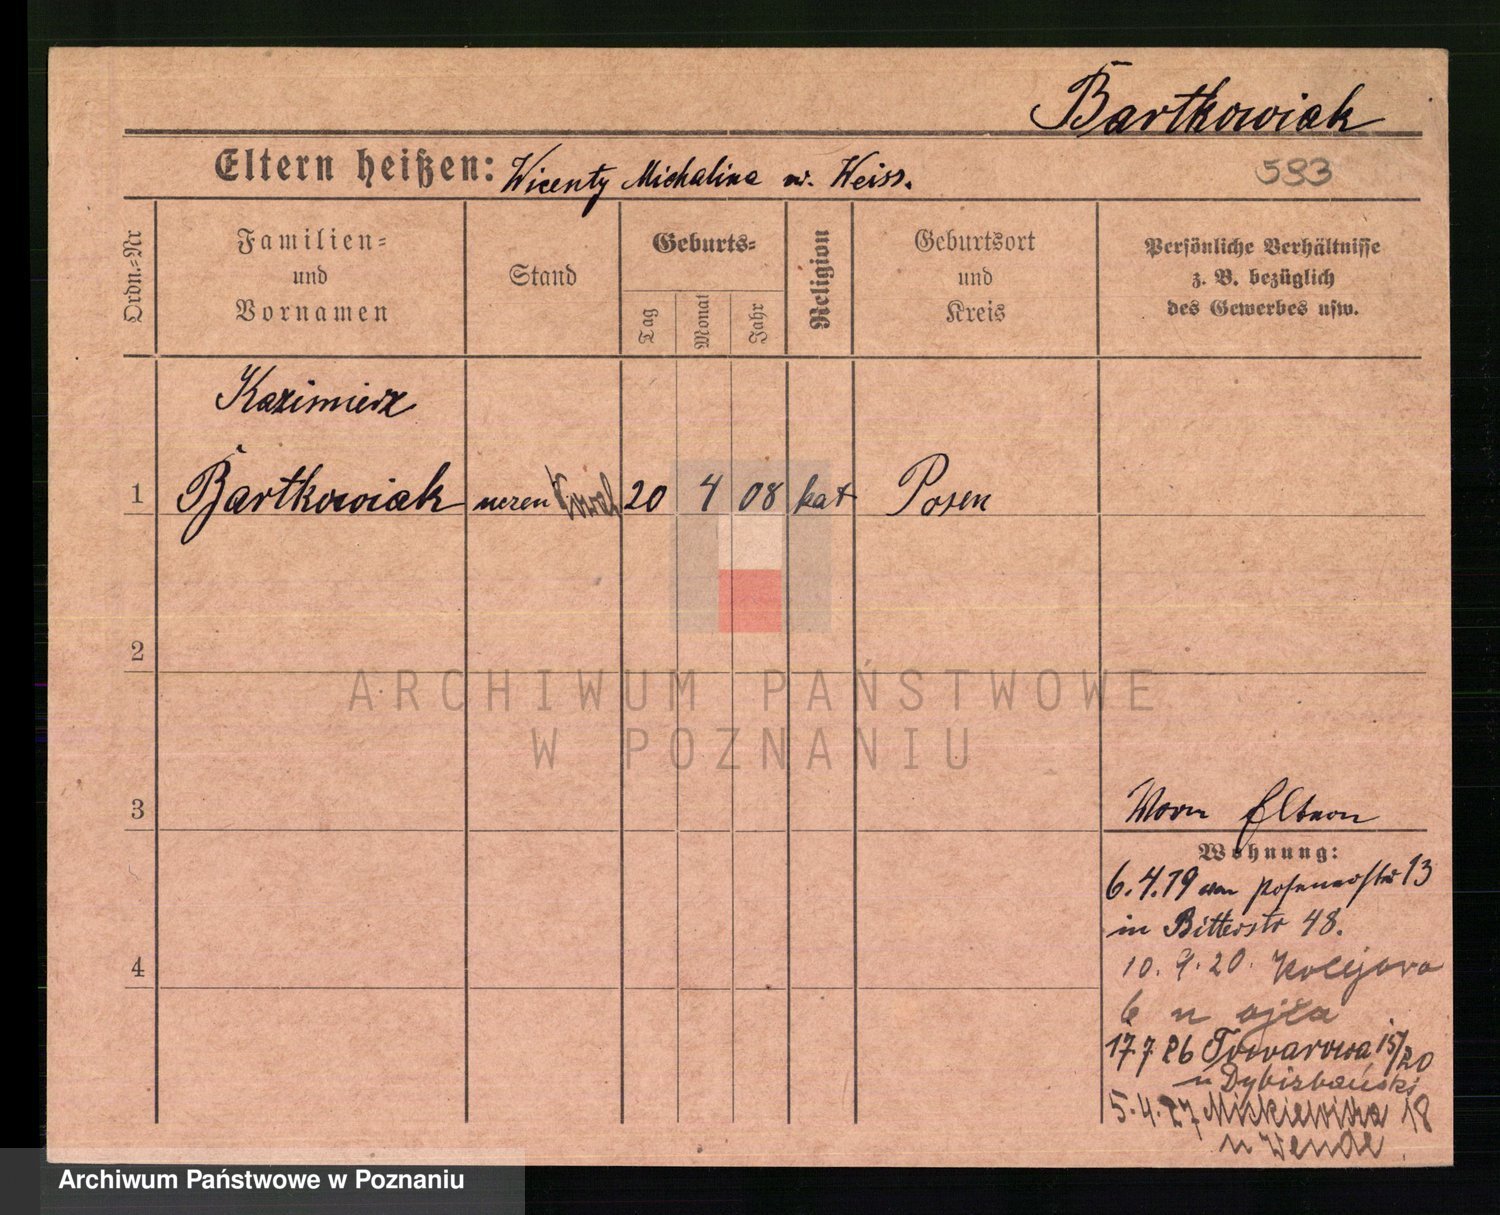 Bartkowiak
Eltern heißen: Wicenty Michalina w. Weiss.
583
Ordn.-Nr
Familien-
und
Vornamen
Stand
Geburts-
Tag
Monat
Jahr
Religion
Geburtsort
und
Kreis
Persönliche Verhältnisse
z. B. bezüglich
des Gewerbes usw.
Kazimierz
1 Bartkowiak 20 4 08 kat Posen
2
ARCHIWUM PAŃSTWOWE
W POZNANIU
3
Eltern
Wohnung:
6.4.19 von 13
in Bitterstr 48.
10.9.20. Kolejova
4
6 u ojca
17 7 26 Towarowa 15/20
u Dybizbański
5.4.27 Mickiewicza 18
u Wende
Archiwum Państwowe w Poznaniu